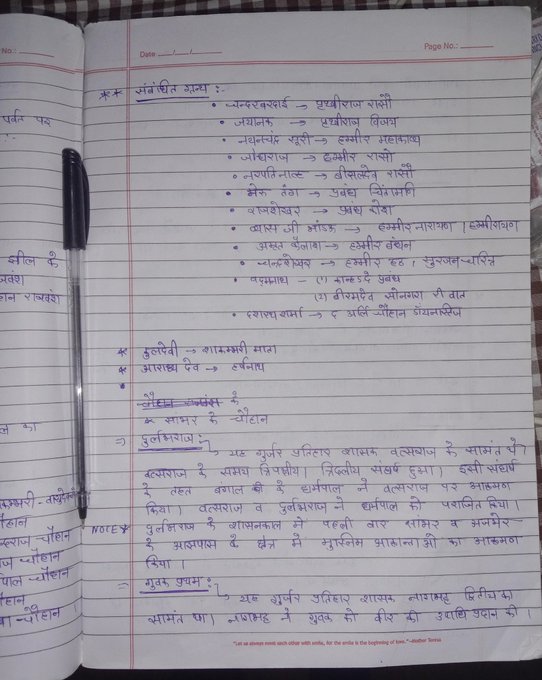 No.:
Date __/__/__
Page No.:
** संबंधित ग्रन्थ :-
• चन्दरबरदाई → पृथ्वीराज रासौ
• जयानक → पृथ्वीराज विजय
• नयनचंद्र सूरी → हम्मीर महाकाव्य
• जोधराज → हम्मीर रासो
• नरपति नाल्ह → बीसलदेव रासौ
• मेरु तुंग → प्रबंध चिंतामणी
• राजशेखर → प्रबंध कोश
• व्यास जी भांडक → हम्मीरनारायण / हम्मीरायण
• अमृत कैलाश → हम्मीर बंधन
• चन्द्रशेखर → हम्मीर हठ, सुरजन चरित्र
• पद्मनाथ – (1) कान्हड़दे प्रबंध
(2) वीरमदेव सोनगरा री वात
• दशरथ शर्मा → द अर्लि चौहान डॉयनास्टिज
* कुलदेवी → शाकम्भरी माता
* आराध्य देव → हर्षनाथ
•
चौहान राजवंश के
सांभर के चौहान
⇒ दुर्लभराज :-
→ यह गुर्जर प्रतिहार शासक वत्सराज के सामंत थे।
वत्सराज के समय त्रिपक्षीय / त्रिदलीय संघर्ष हुआ। इसी संघर्ष
के तहत बंगाल के धर्मपाल ने वत्सराज पर आक्रमण
किया। वत्सराज व दुर्लभराज ने धर्मपाल को पराजित किया।
NOTE * दुर्लभराज के शासनकाल में पहली बार सांभर व अजमेर
के आसपास के क्षेत्र में मुस्लिम आक्रान्ताओं का आक्रमण
किया।
⇒ गुवक प्रथम :-
→ यह गुर्जर प्रतिहार शासक नागभट्ट द्वितीय का
सामंत था। नागभट्ट ने गुवक को वीर की उपाधि प्रदान की।
"Let us always meet each other with smile, for the smile is the beginning of love." –Mother Teresa
No.:
पर्वत पर
झील के
राजवंश
हान राजवंश
ल का
कम्भरी
चौहान
राज चौहान
पाल चौहान
हान
चौहान